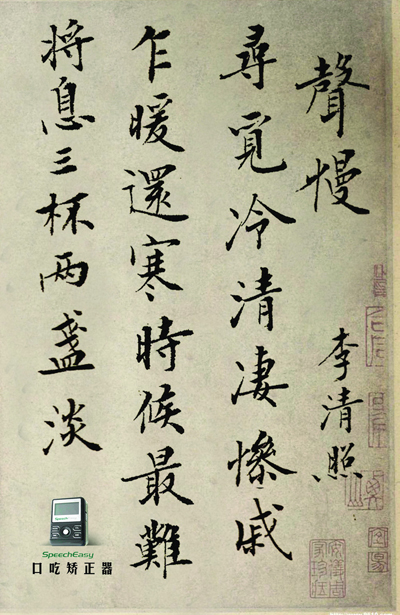 聲慢
李清照
尋覓冷清凄慘戚
乍暖還寒時候最難
将息三杯两盞淡
SpeechEasy
口吃矫正器